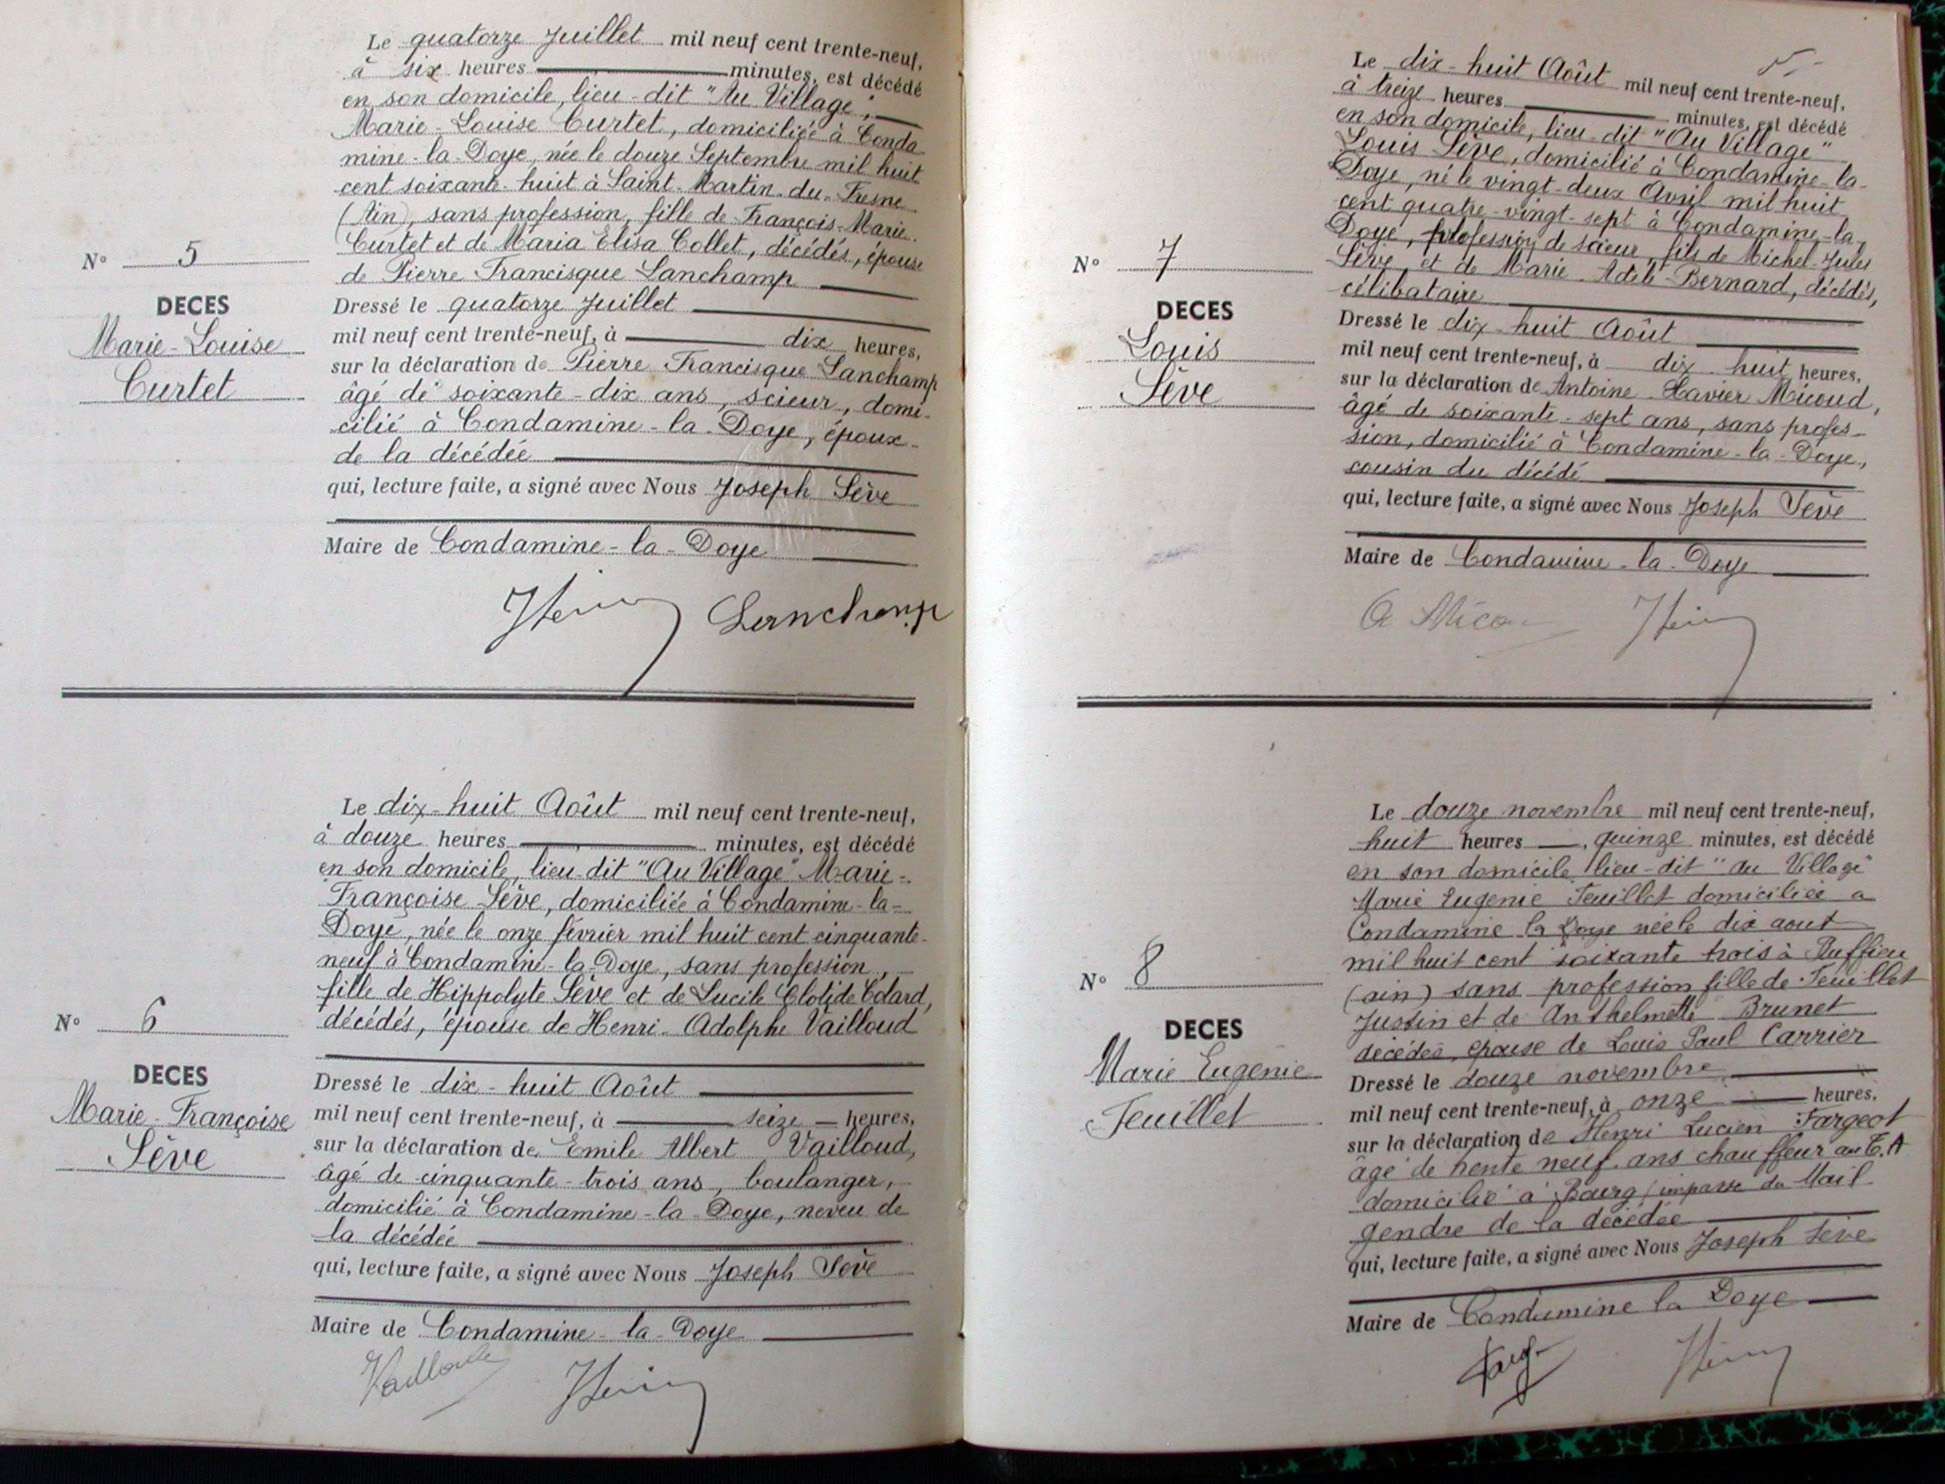 Le quatorze Juillet mil neuf cent trente-neuf,
à six heures minutes, est décédé
en son domicile, lieu-dit "Au Village",
Marie-Louise Curtet, domiciliée à Conda
mine-la-Doye, née le douze Septembre mil huit
cent soixante-huit à Saint-Martin-du-Fresne
(Ain), sans profession, fille de François-Marie
Curtet et de Maria Elisa Collet, décédés, épouse
de Pierre Francisque Lanchamp
N° 5
DECES
Marie-Louise
Curtet
Dressé le quatorze Juillet
mil neuf cent trente-neuf, à dix heures,
sur la déclaration de Pierre Francisque Lanchamp
âgé de soixante-dix ans, scieur, domi-
cilié à Condamine-la-Doye, époux
de la décédée
qui, lecture faite, a signé avec Nous Joseph Sève
Maire de Condamine-la-Doye
Lanchamp
Le dix-huit Août mil neuf cent trente-neuf,
à douze heures minutes, est décédé
en son domicile, lieu-dit "Au Village" Marie-
Françoise Sève, domiciliée à Condamine-la-
Doye, née le onze février mil huit cent cinquante-
neuf à Condamine-la-Doye, sans profession,
fille de Hippolyte Sève et de Lucile Clotide Colard,
décédés, épouse de Henri-Adolphe Vailloud
N° 6
DECES
Marie-Françoise
Sève
Dressé le dix-huit Août
mil neuf cent trente-neuf, à seize heures,
sur la déclaration de Emile Albert Vailloud,
âgé de cinquante-trois ans, boulanger,
domicilié à Condamine-la-Doye, neveu de
la décédée
qui, lecture faite, a signé avec Nous Joseph Sève
Maire de Condamine-la-Doye
Vailloud
Le dix-huit Août mil neuf cent trente-neuf,
à treize heures minutes, est décédé
en son domicile, lieu-dit "Au Village"
Louis Sève, domicilié à Condamine-la-
Doye, né le vingt-deux Avril mil huit
cent quatre-vingt-sept à Condamine-la-
Doye, profession de scieur, fils de Michel-Jules
Sève et de Marie-Adèle Bernard, décédés,
célibataire
N° 7
DECES
Louis
Sève
Dressé le dix-huit Août
mil neuf cent trente-neuf, à dix-huit heures,
sur la déclaration de Antoine-Xavier Micoud,
âgé de soixante-sept ans, sans profes-
sion, domicilié à Condamine-la-Doye,
cousin du décédé
qui, lecture faite, a signé avec Nous Joseph Sève
Maire de Condamine-la-Doye
Le douze novembre mil neuf cent trente-neuf,
huit heures, quinze minutes, est décédé
en son domicile lieu-dit "au Village"
Marie Eugenie Feuillet domiciliée a
Condamine la Doye née le dix aout
mil huit cent soixante trois à Ruffieu
(ain) sans profession fille de Feuillet
Justin et de Anthelmette Brunet
décédés, epouse de Louis Paul Carrier
N° 8
DECES
Marie Eugénie
Feuillet
Dressé le douze novembre
mil neuf cent trente-neuf, à onze heures,
sur la déclaration de Henri Lucien Fargeot
âgé de trente neuf ans chauffeur au T.A
domicilié à Bourg, impasse du Mail
gendre de la décédée
qui, lecture faite, a signé avec Nous Joseph Sève
Maire de Condamine la Doye